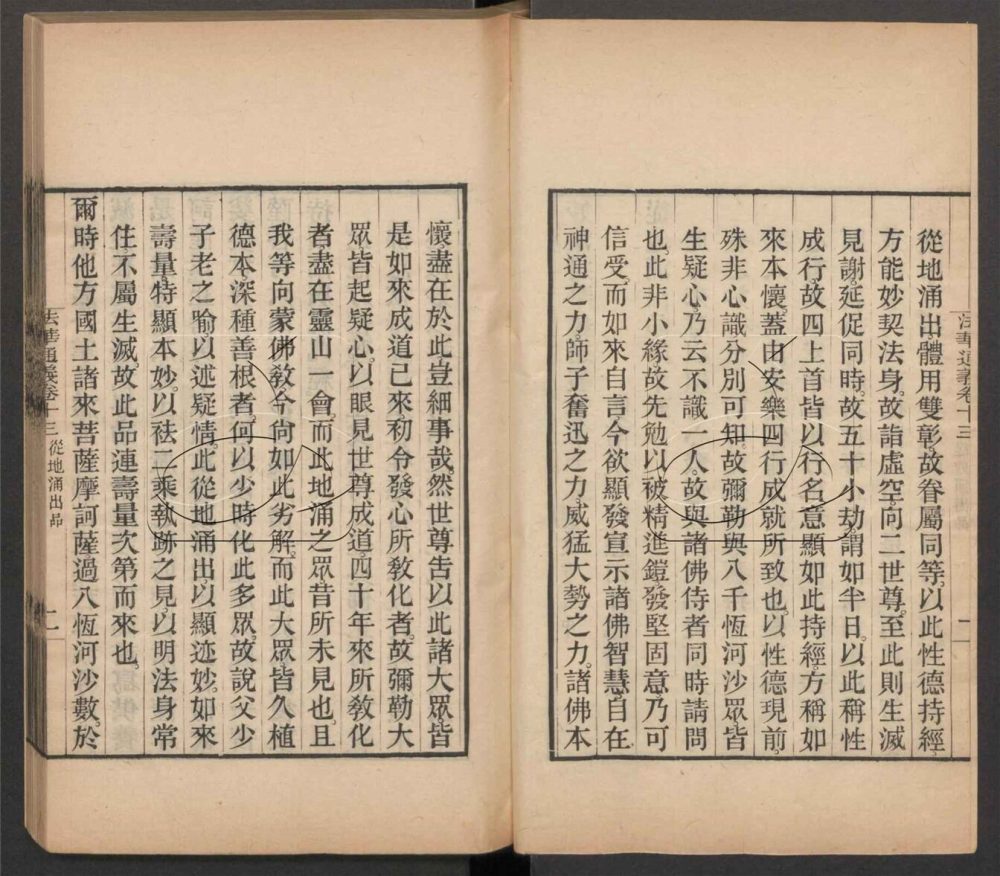 從地涌出體用雙彰故眷屬同等以此性德持經
方能妙契法身故詣虛空向二世尊至此則生滅
見謝延促同時故五十小劫謂如半日以此稱性
成行故四上首皆以行名意顯如此持經方稱如
來本懷蓋由安樂四行成就所致也以性德現前
殊非心識分別可知故彌勒與八千恆河沙眾皆
生疑心乃云不識一人故與諸佛侍者同時請問
也此非小緣故先勉以被精進鎧發堅固意乃可
信受而如來自言今欲顯發宣示諸佛智慧自在
神通之力師子奮迅之力威猛大勢之力諸佛本
法華通義卷十三
二
懷盡在於此豈細事哉然世尊告以此諸大眾皆
是如來成道已來初令發心所敎化者故彌勒大
眾皆起疑心以眼見世尊成道四十年來所敎化
者盡在靈山一會而此地涌之眾昔所未見也且
我等向蒙佛敎今尙如此劣解而此大眾皆久植
德本深種善根者何以少時化此多眾故說父少
子老之喻以述疑情此從地涌出以顯迹妙如來
壽量特顯本妙以袪二乘執跡之見以明法身常
住不屬生滅故此品連壽量次第而來也
爾時他方國土諸來菩薩摩訶薩過八恆河沙數於
法華通義卷十三 從地涌出品
二